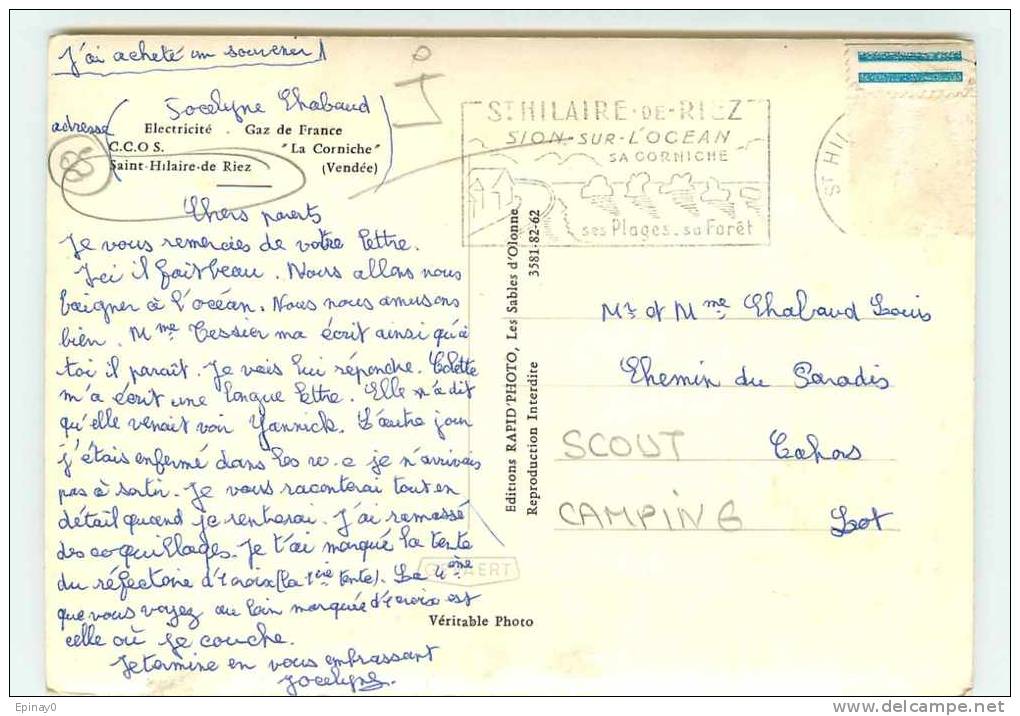 J'ai acheté un souvenir
Jocelyne Chabaud
adresse
Electricité . Gaz de France
C.C.O.S. "La Corniche"
Saint-Hilaire-de Riez (Vendée)
88
Chers parents
Je vous remercies de votre lettre.
Ici il fait beau. Nous allons nous
baigner à l'océan. Nous nous amusons
bien. Mme Tessier ma écrit ainsi qu'à
toi il parait. Je vais lui répondre. Colette
m'a écrit une longue lettre. Elle m'a dit
qu'elle venait voir Yannick. L'autre jour
j'étais enfermé dans les w.c je n'arrivais
pas à sortir. Je vous raconterai tout en
détail quand je rentrerai. J'ai ramassé
des coquillages. Je t'ai marqué la tente
du réfectoire d'1 croix (la 1ère tente). La 4ème
que vous voyez au loin marquée d'1 croix est
celle où je couche.
Je termine en vous embrassant
Jocelyne.
ST HILAIRE-DE-RIEZ
SION-SUR-L'OCEAN
SA CORNICHE
ses Plages-sa Forêt
ST HIL
Editions RAPID'PHOTO, Les Sables d'Olonne
3581-82-62
Reproduction Interdite
GEVAERT
Véritable Photo
Mr et Mme Chabaud Louis
Chemin du Paradis
SCOUT
Cahors
CAMPING
Lot
Epinay0
delcampe.net